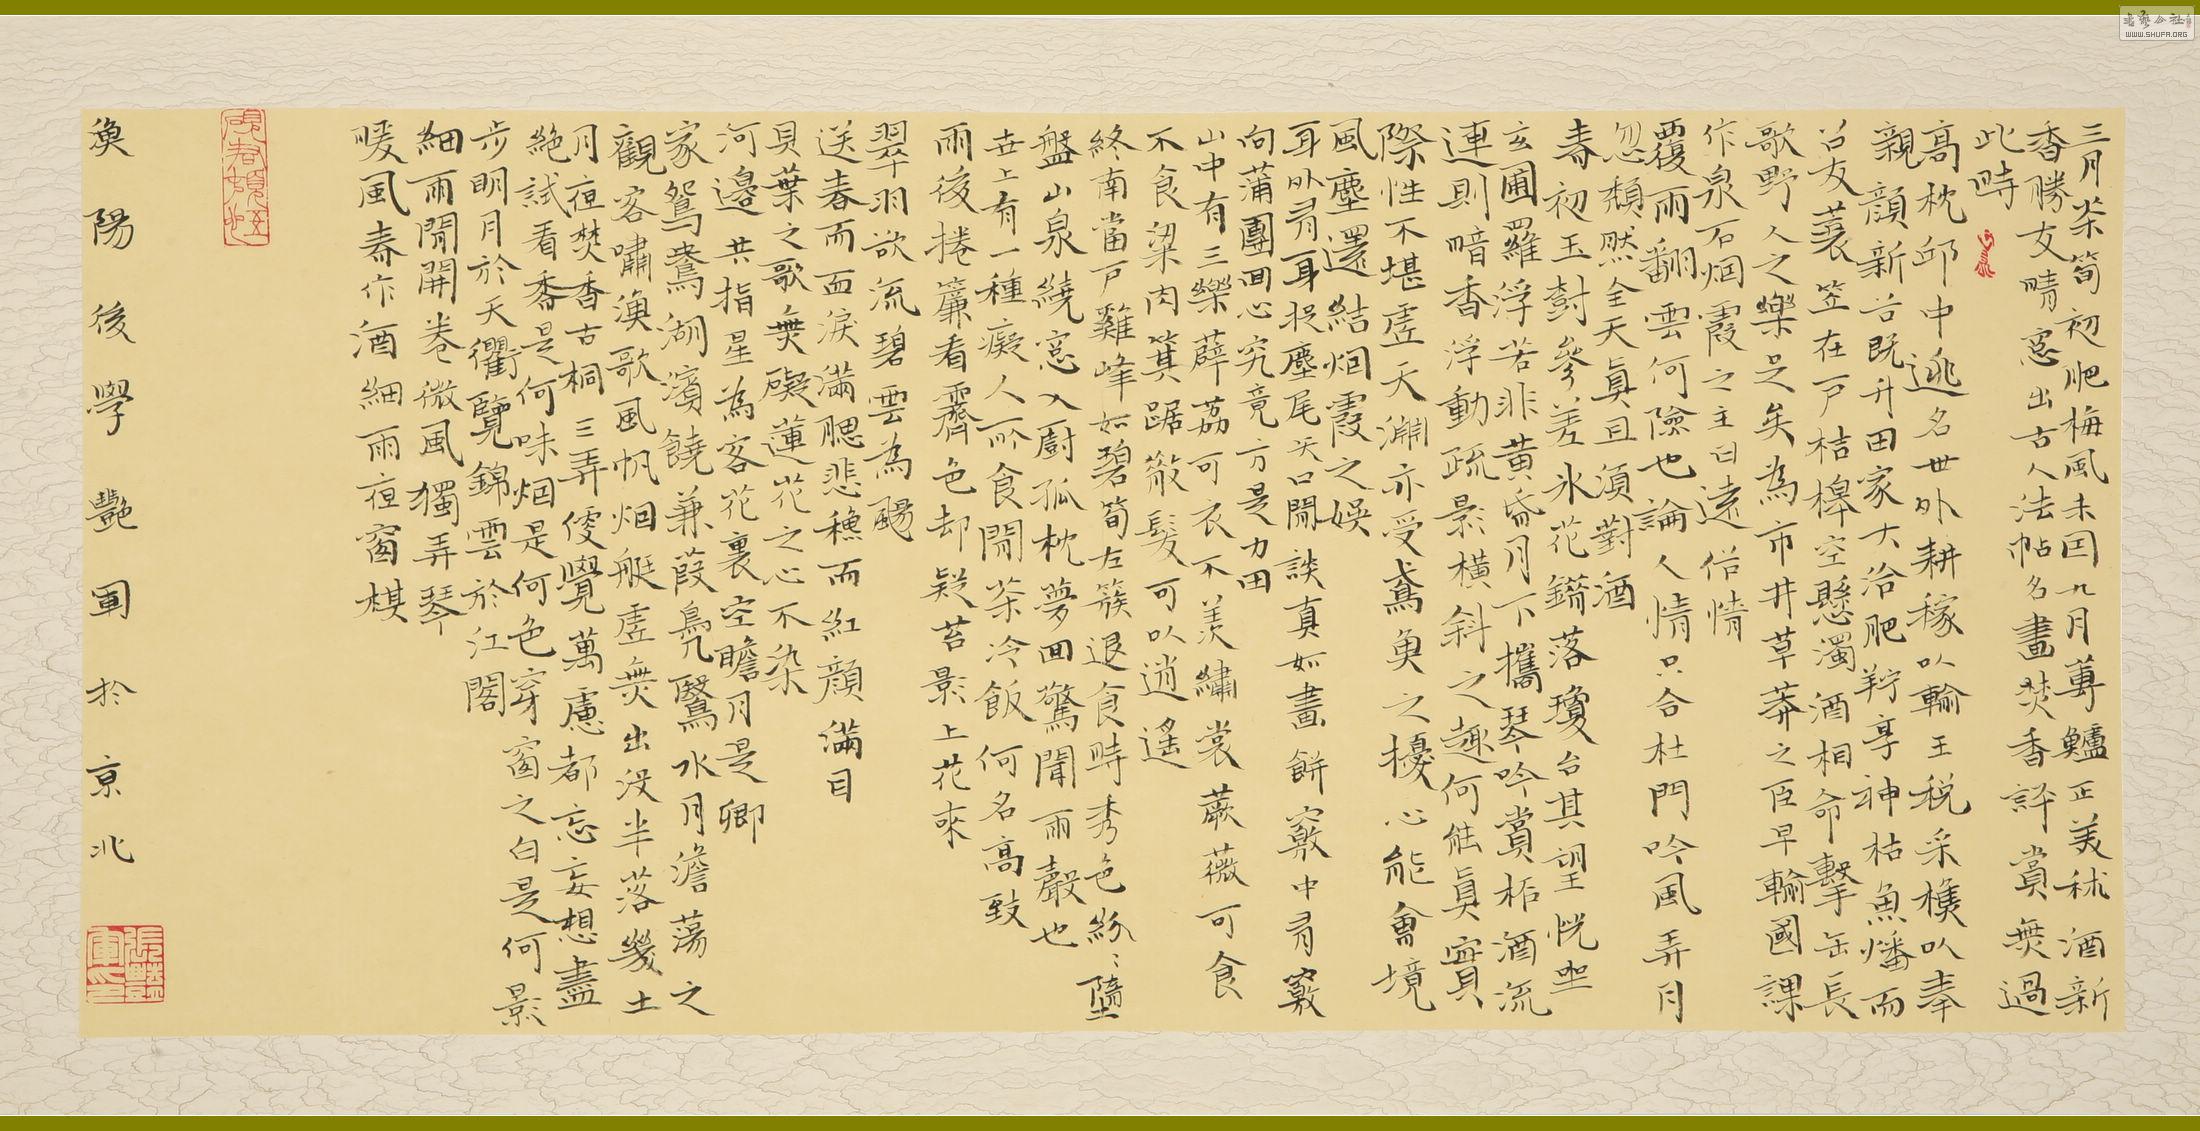 三月茶筍初肥梅風未困九月蓴鱸正美秫酒新
香勝友晴窓出古人法帖名畫焚香評賞無過
此時
高枕邱中逃名世外耕稼以輸王稅采樵以奉
親顏新谷既升田家大洽肥羜享神枯魚燔而
召友蓑笠在戶桔槔空懸濁酒相命擊缶長
歌野人之樂足矣為市井草莽之臣早輸國課
作泉石烟霞之主日遠俗情
覆雨翻雲何險也論人情只合杜門吟風弄月
忽頹然全天真且須對酒
春初玉樹參差氷花錯落瓊台其望恍坐
玄圃羅浮若非黃昏月下攜琴吟賞柘酒流
連則暗香浮動疏影橫斜之趣何能真實
際性不堪虛天淵亦受鳶魚之擾心能會境
風塵還結烟霞之娛
耳外有耳捉塵尾矢口閒談真如畫餅竅中有竅
向蒲團回心究竟方是力田
山中有三樂薜荔可衣不羨繡裳蕨薇可食
不食粱肉箕踞散髮可以逍遙
終南當戶雞峰如碧筍左簇退食時秀色紛〻墮
盤山泉繞窓入廚孤枕夢回驚聞雨聲也
世上有一種癡人所食閒茶冷飯何名高致
雨後捲簾看霽色却疑苔影上花來
翠羽欲流碧雲為颺
送春而面淚滿腮悲穗而紅顏滿目
貝葉之歌無礙蓮花之心不染
河邊共指星為客花裏空瞻月是卿
家鴛鴦湖濱饒蒹葭鳧鷖水月澹蕩之
觀客嘯漁歌風帆烟艇虛無出沒半落幾上
月夜焚香古桐三弄便覺萬慮都忘妄想盡
絕試看香是何味烟是何色穿窗之白是何影
步明月於天衢覽錦雲於江閣
細雨閒開卷微風獨弄琴
暖風春作酒細雨夜窗棋
渙陽後學艷軍於京北